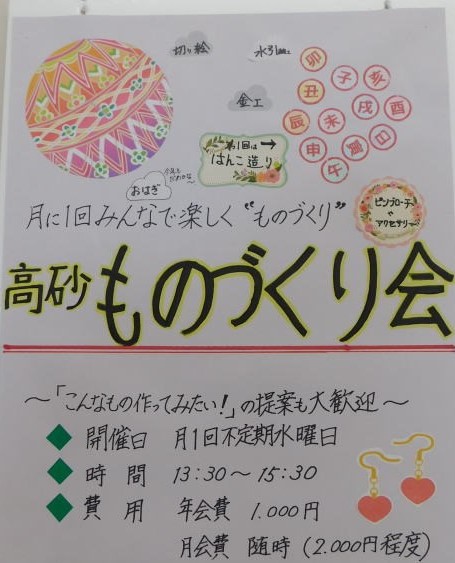 切り絵
水引細工
金工
卯
子
亥
丑
戌
酉
辰
未
申
寅
巳
午
第1回は→
はんこ造り
おはぎ
ピンブローチ
や
アクセサリー
月に1回みんなで楽しく“ものづくり”
高砂ものづくり会
～「こんなもの作ってみたい!」の提案も大歓迎～
◆ 開催日 月1回不定期水曜日
◆ 時間 13:30～15:30
◆ 費用 年会費 1.000円
月会費 随時 (2.000円程度)